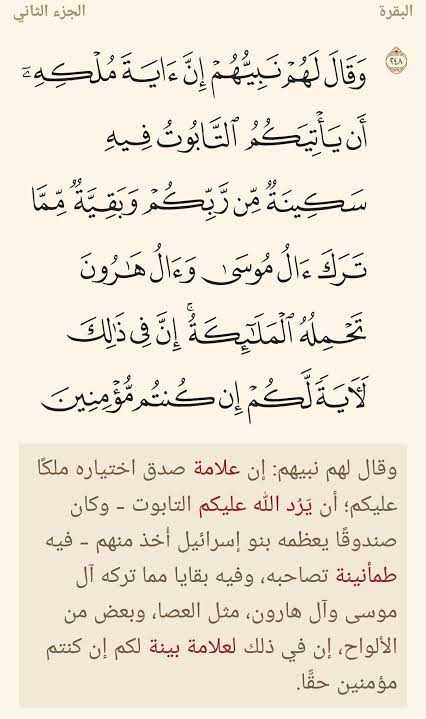 البقرة الجزء الثاني
٢٤٨ وَقَالَ لَهُمْ نَبِيُّهُمْ إِنَّ ءَايَةَ مُلْكِهِۦٓ
أَن يَأْتِيَكُمُ ٱلتَّابُوتُ فِيهِ
سَكِينَةٌ مِّن رَّبِّكُمْ وَبَقِيَّةٌ مِّمَّا
تَرَكَ ءَالُ مُوسَىٰ وَءَالُ هَـٰرُونَ
تَحْمِلُهُ ٱلْمَلَـٰٓئِكَةُ ۚ إِنَّ فِى ذَٰلِكَ
لَـَٔايَةً لَّكُمْ إِن كُنتُم مُّؤْمِنِينَ
وقال لهم نبيهم: إن علامة صدق اختياره ملكًا
عليكم؛ أن يَرُد الله عليكم التابوت - وكان
صندوقًا يعظمه بنو إسرائيل أخذ منهم - فيه
طمأنينة تصاحبه، وفيه بقايا مما تركه آل
موسى وآل هارون، مثل العصا، وبعض من
الألواح، إن في ذلك لعلامة بينة لكم إن كنتم
مؤمنين حقًّا.